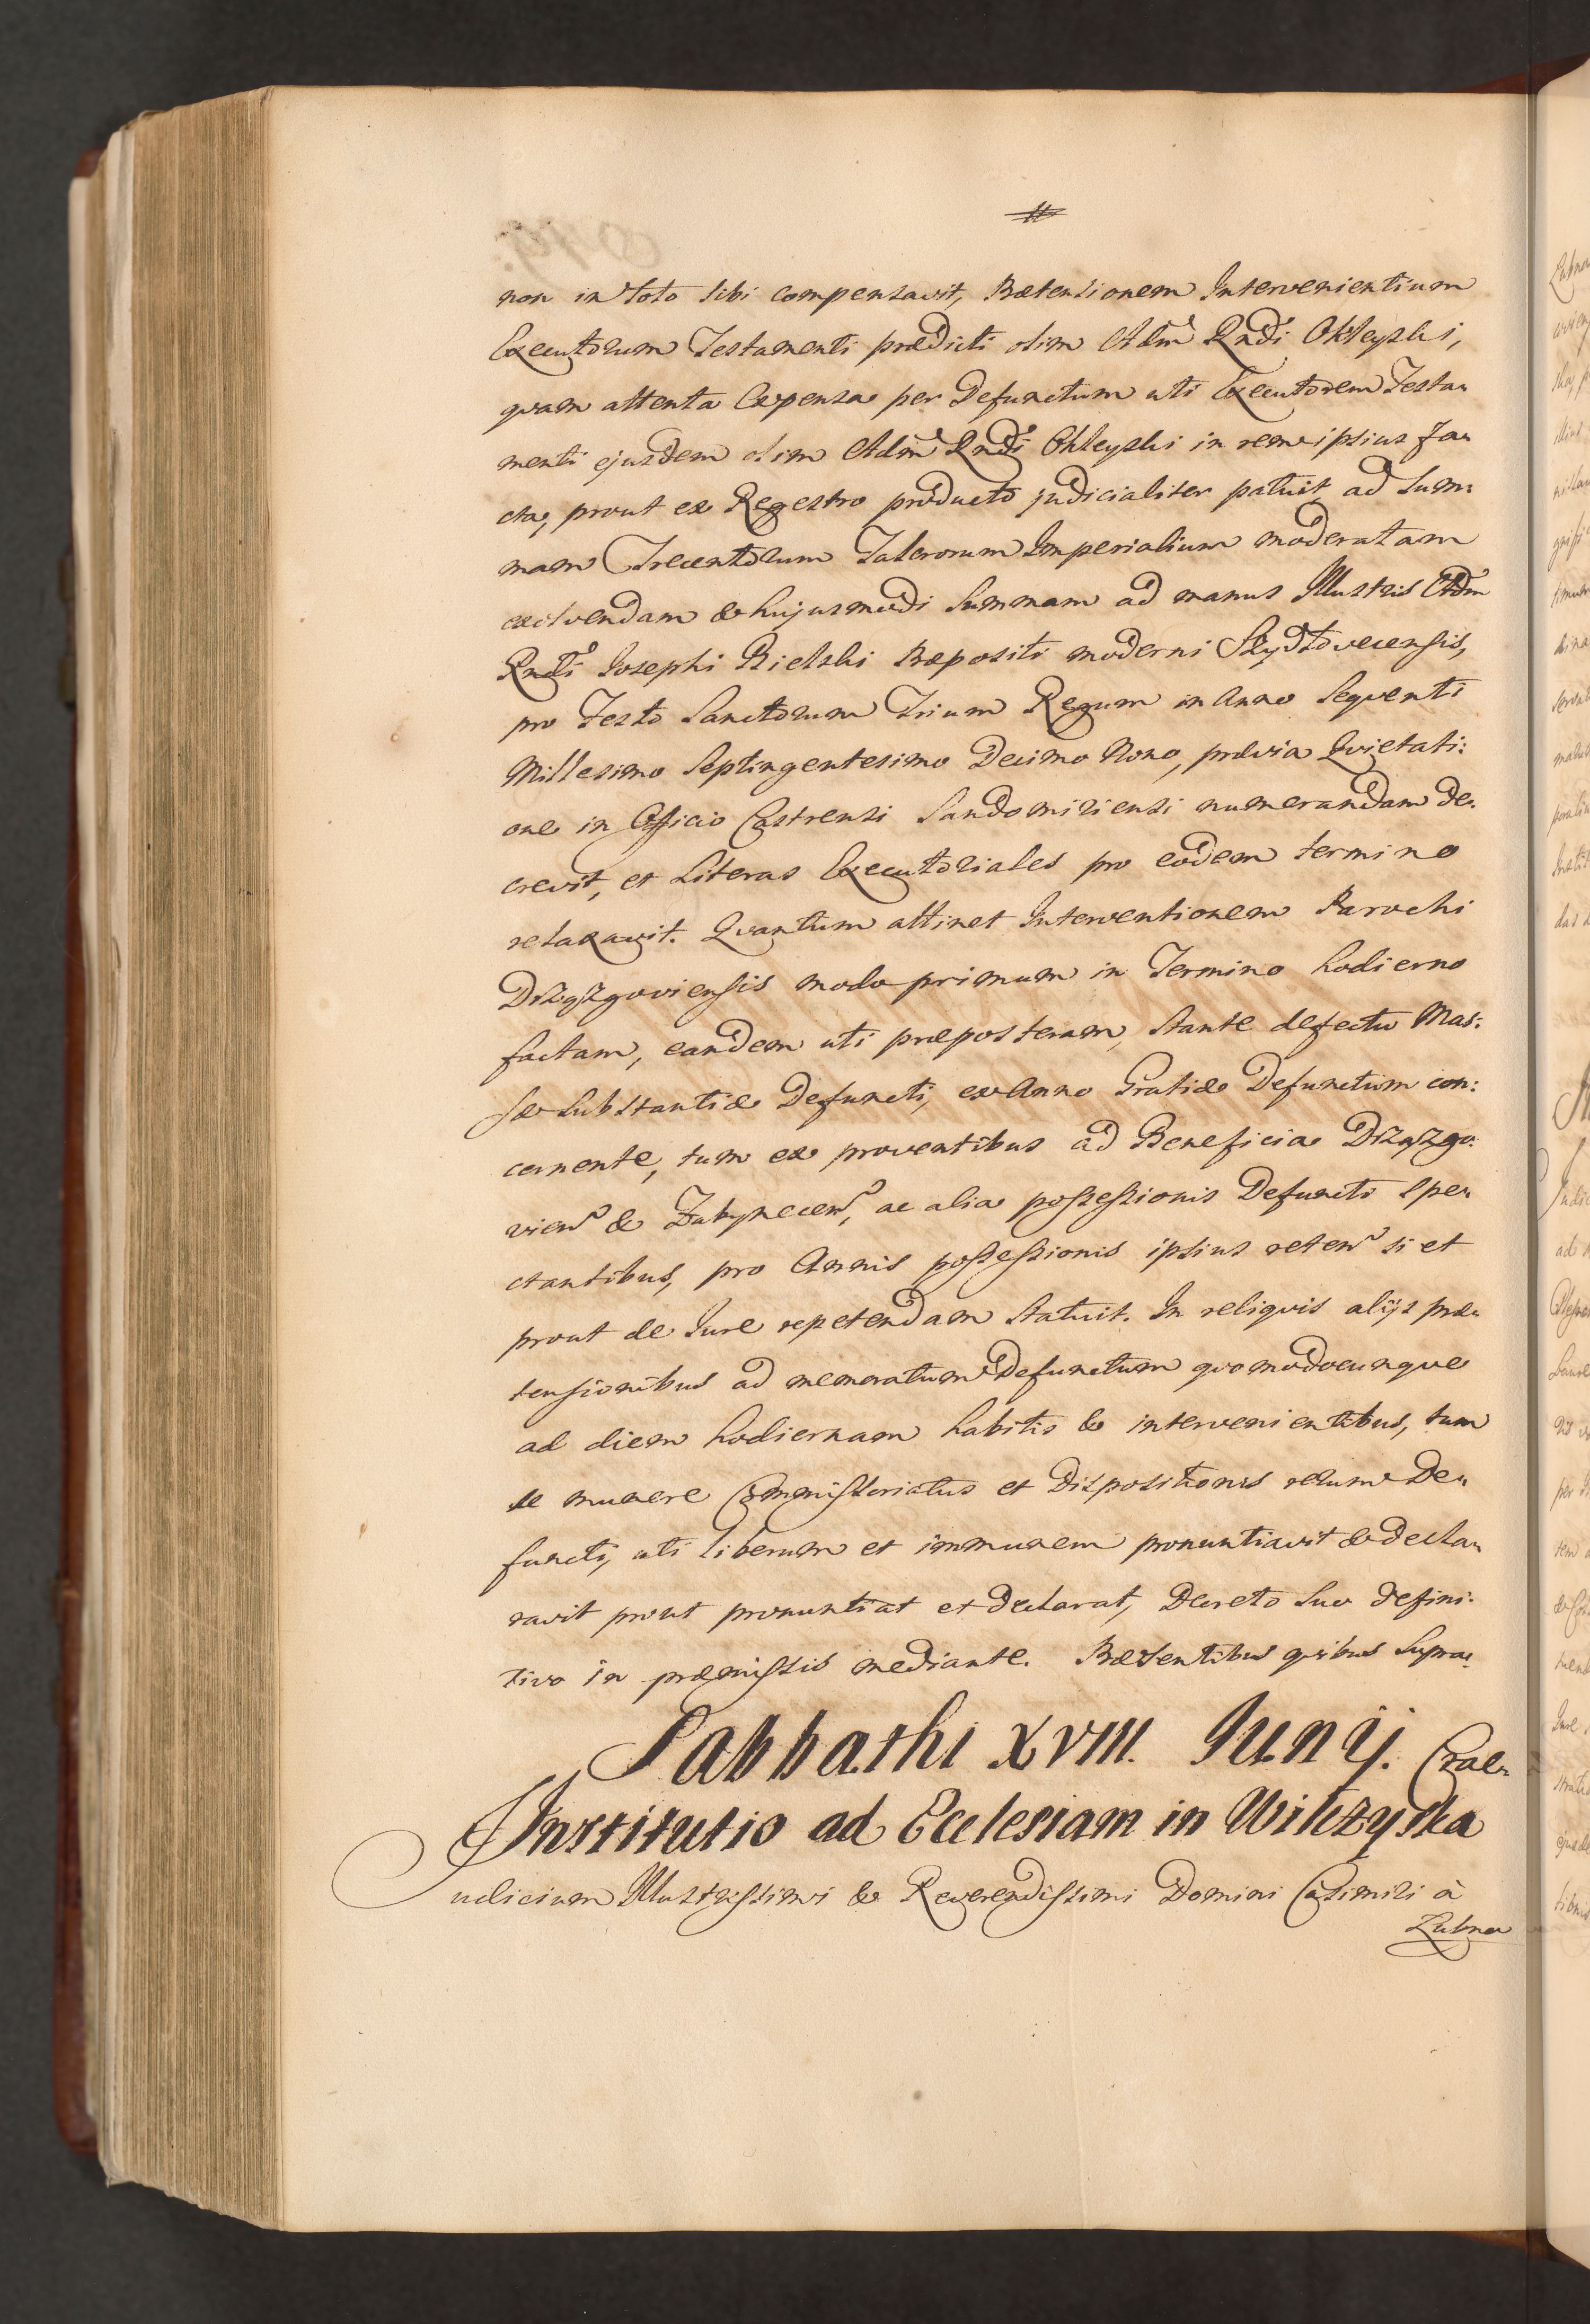 non in toto sibi compensavit, Prætensionem Intervenientium
Executorum Testamenti prædicti olim Adm Rndi Okleyski,
qvam attenta Expensa per Defunctum uti Executorem Testa-
menti ejusdem olim Adm Rndi Okleyski in rem ipsius fa-
cta, prout ex Regestro producto judicialiter patuit, ad Sum-
mam Trecentorum Talerorum Imperialium moderatam
exolvendam & hujusmodi Summam ad manus Illustris Adm
Rndi Josephi Bielski Præpositi moderni Szydlovecensis,
pro Festo Sanctorum Trium Regum in Anno Seqventi
Millesimo Septingentesimo Decimo Nono, prævia Qvietati:
one in Officio Castrensi Sandomiriensi numerandam de-
crevit, et Literas Executoriales pro eodem termino
relaxavit. Qvantum attinet Interventionem Parochi
Drzązgoviensis modo primum in Termino hodierno
factam, eandem uti præposteram, stante defectu Mas:
sæ Substantiæ Defuncti, ex Anno Gratiæ Defunctum con:
cernente, tum ex proventibus ad Beneficia Drzązgo:
vien & Zakrzecen, ac alia possessionis Defuncti spe-
ctantibus, pro Annis possessionis ipsius reten si et
prout de Jure repetendam statuit. In reliqvis alijs præ-
tensionibus ad memoratum Defunctum qvomodocunqve
ad diem hodiernam habitis & intervenientibus, tum
se munere Commissoriatus et Dispositionis rerum De-
functi, uti liberum et immunem pronuntiavit & decla-
ravit prout pronuntiat et declarat, Decreto suo defini-
tivo in præmissis mediante. Præsentibus qvibus Supra.
Sabbathi XVIII. Junij. Crac-
Institutio ad Ecclesiam in Wilczyska
Judicium Illustrissimi & Reverendissimi Domini Casimiri à
Lubna